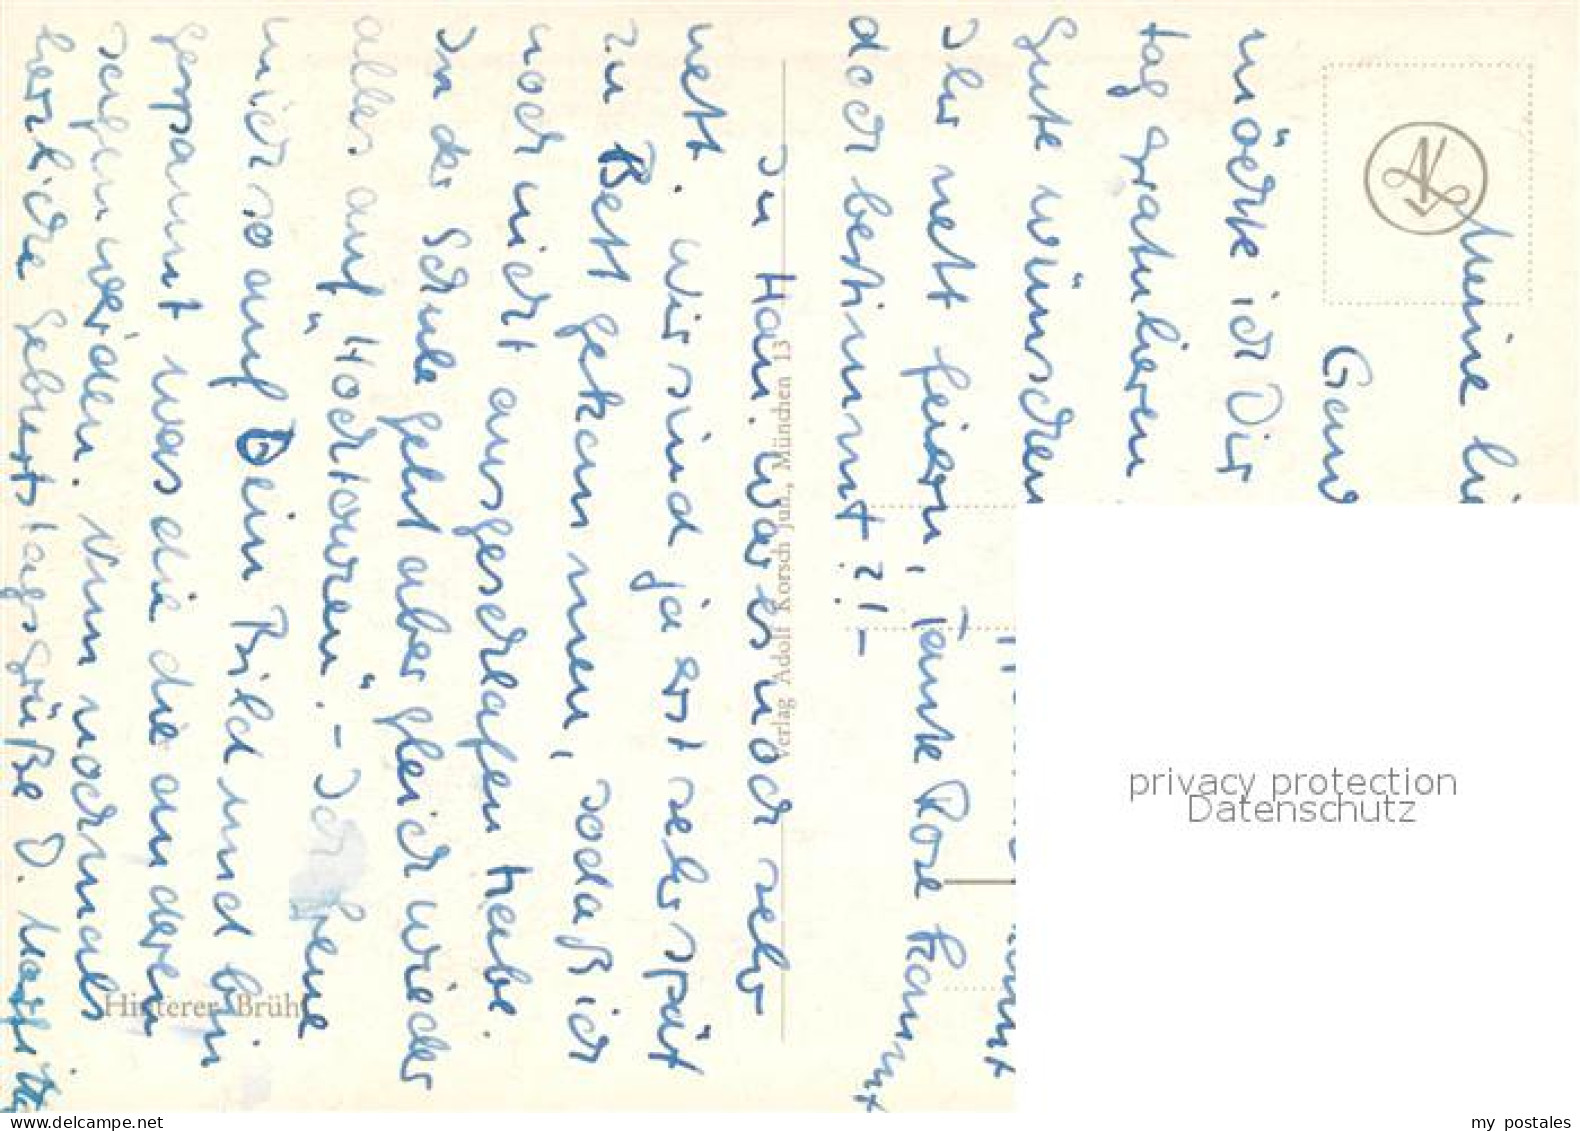 Meine
möchte ich Dir
tag gratulieren
Gute wünschen
Ihr nett feiern, Tante Rose kommt
doch bestimmt?! –
In Han. war es noch sehr
nett. Wir sind ja erst sehr spät
zu Bett gekommen, sodaß ich
noch nicht ausgeschlafen habe.
In der Schule geht aber gleich wieder
alles auf "Hochtouren". – Ich freue
mich so auf Dein Bild und bin
gespannt was die die anderen
sagen werden. Nun nochmals
herzliche Geburtstagsgrüße D.
Verlag Adolf Korsch jun., München 13
Hinterer Brühl
AK
privacy protection
Datenschutz
my postales